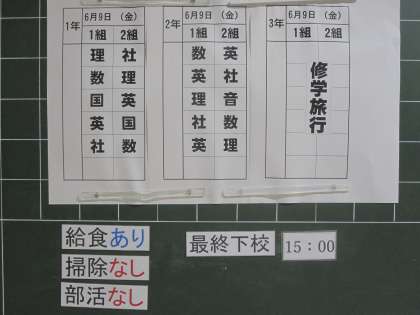 1年 6月9日 (金)
1組 2組
理 社
数 理
国 英
英 国
社 数
2年 6月9日 (金)
1組 2組
数 英
英 社
理 音
社 数
英 理
3年 6月9日 (金)
1組 2組
修学旅行
給食あり
掃除なし
部活なし
最終下校 15:00